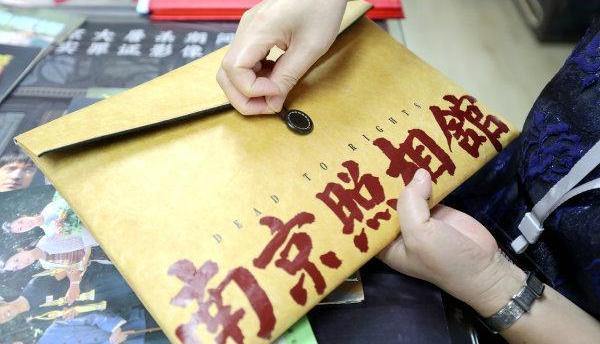 DEAD TO RIGHTS
南京照相館